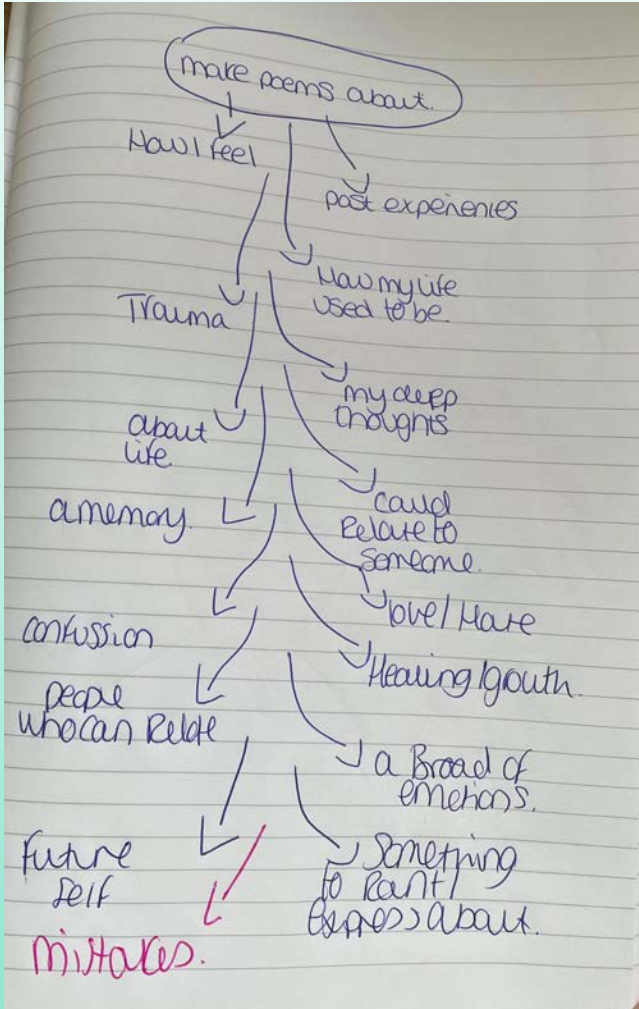 make poems about.
How I feel
past experiences
How my life
used to be.
Trauma
my deep
thoughts
about
life
a memory.
could
Relate to
someone.
love/Hate
confussion
Healing/gouth.
people
who can Relate
a Broad of
emotions.
future
self
Something
to Rant/
Express about.
mistakes.